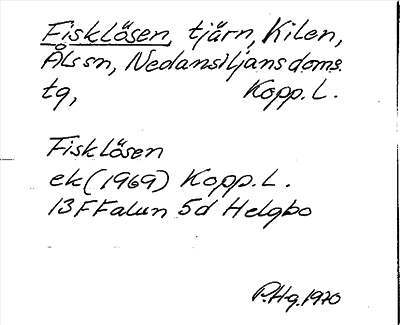 Fisklösen, tjärn, Kilen,
Ålssn, Nedansiljansdoms
tg, Kopp. L.
Fisklösen
ek (1969) Kopp. L.
13F Falun 5d Helgbo
P.Hg. 1970